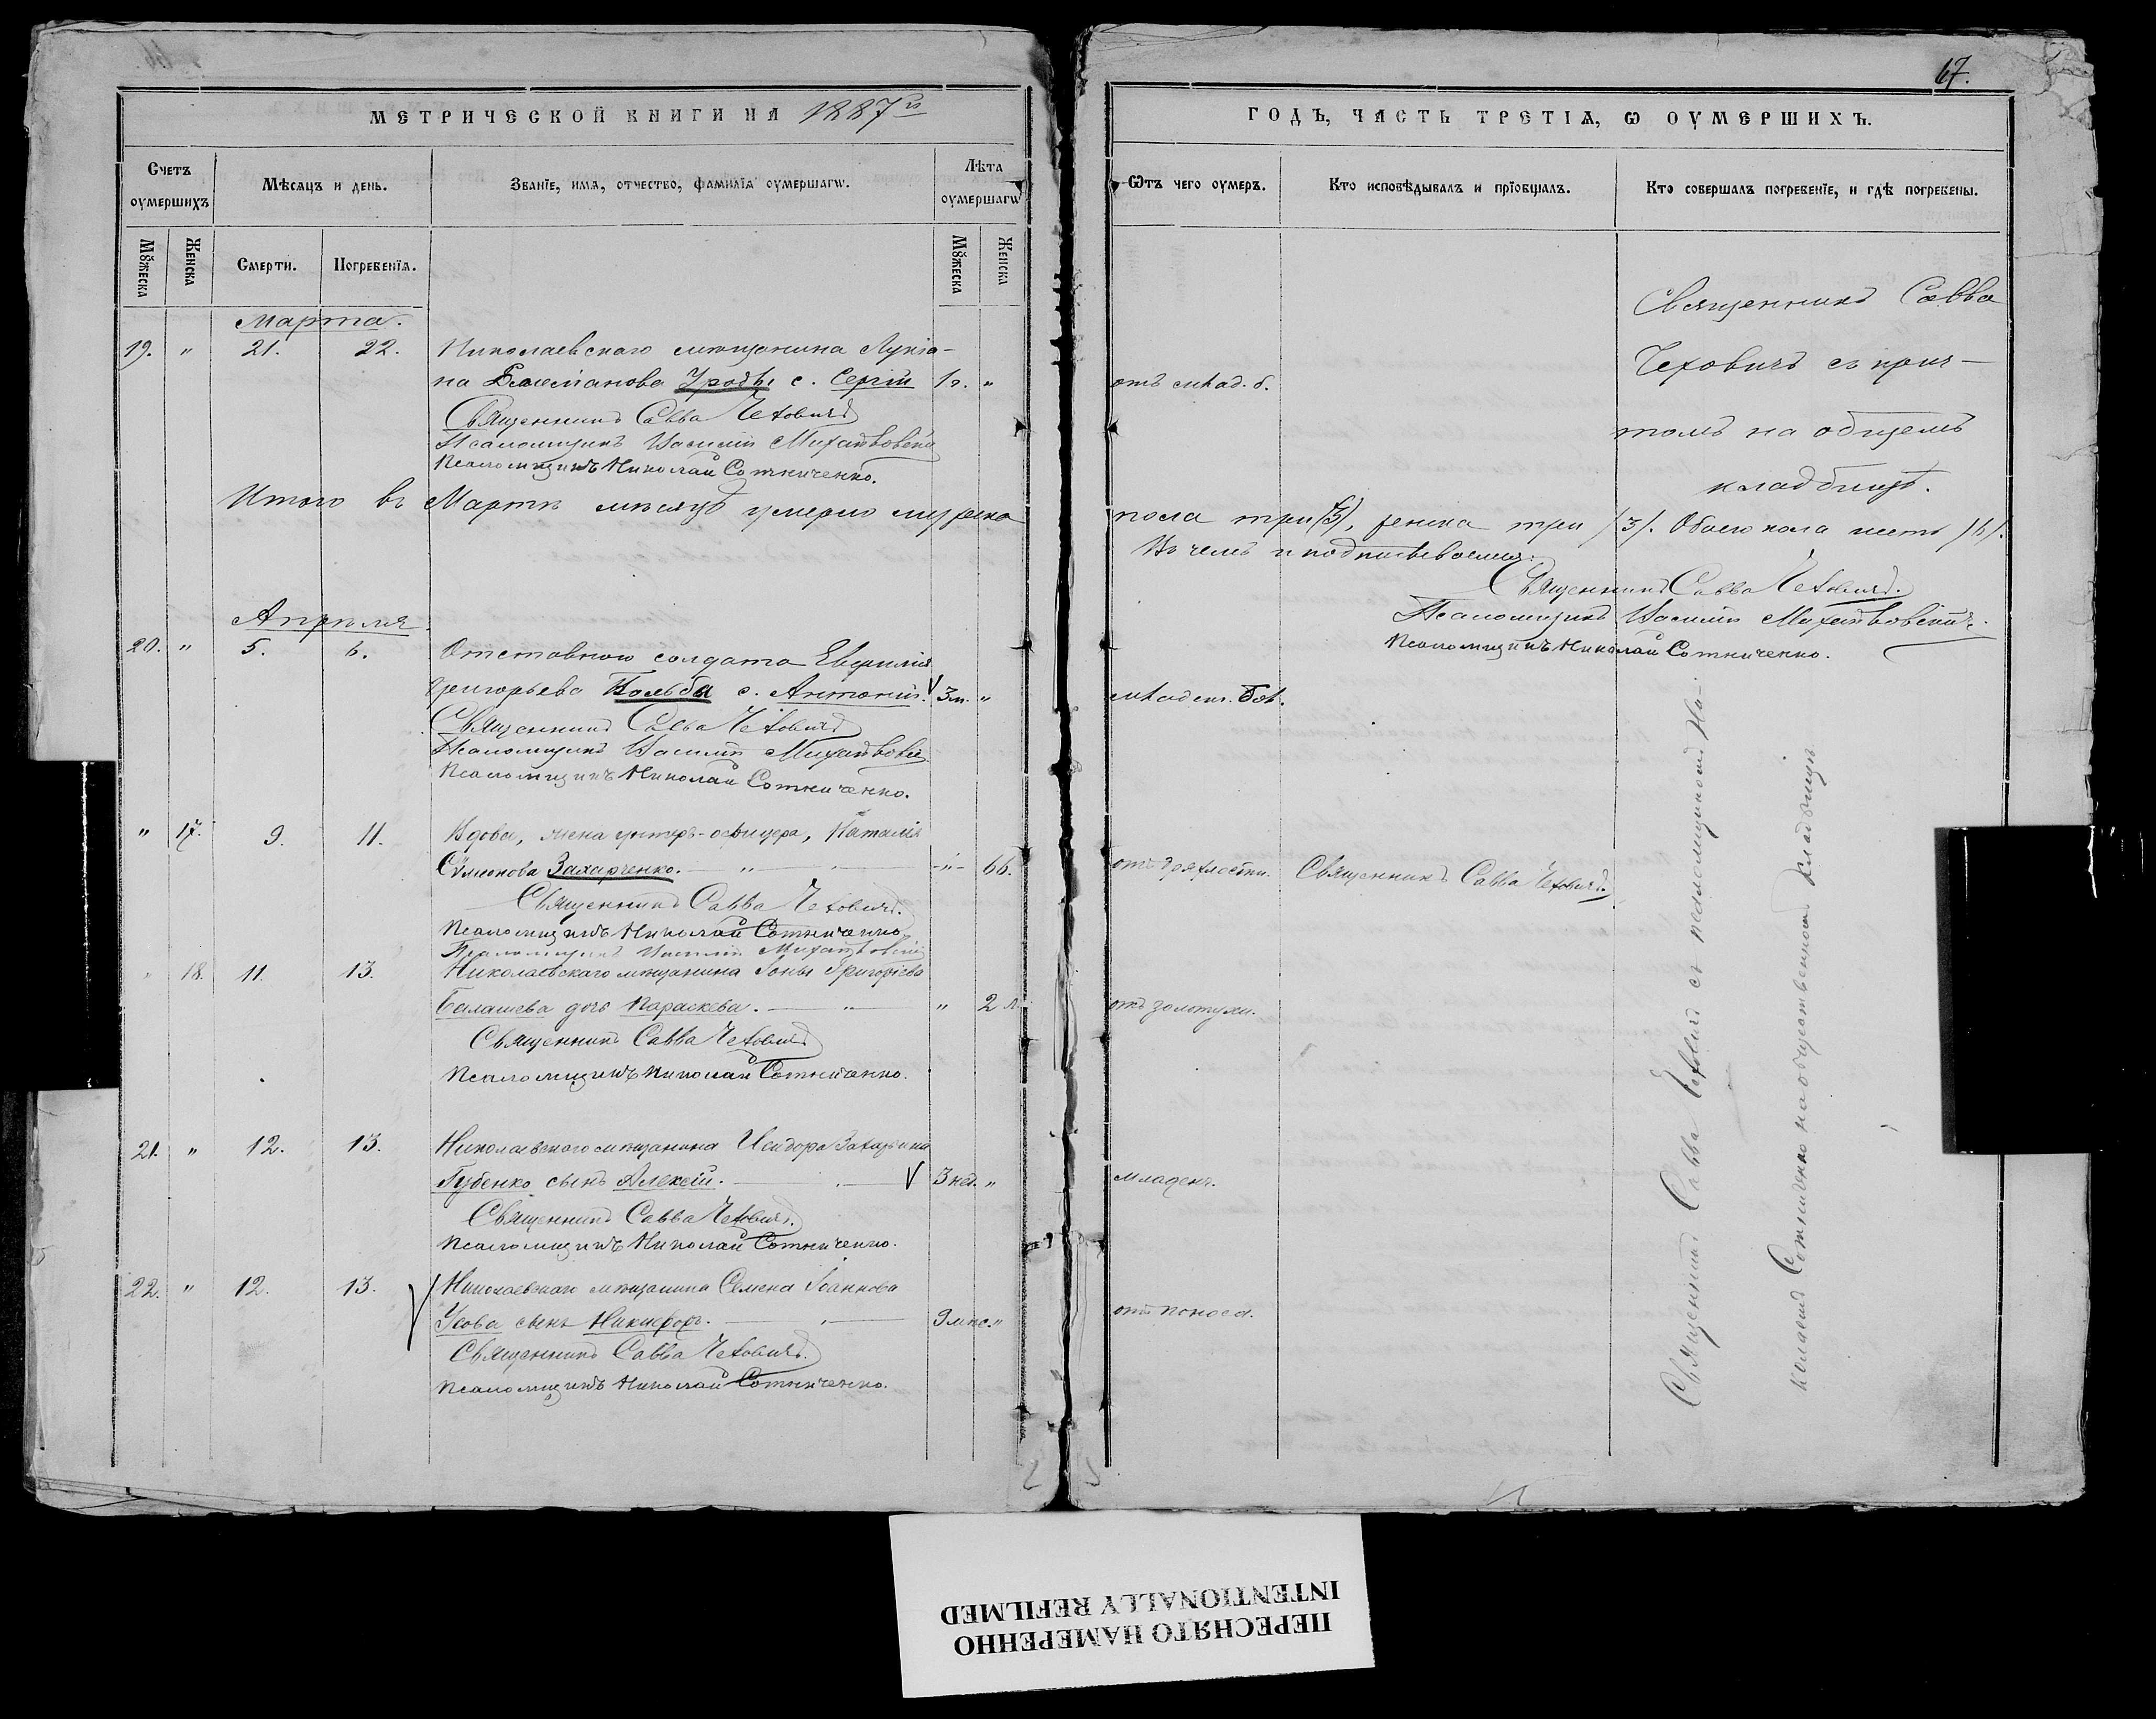 67.
МЕТРИЧЕСКОЙ КНИГИ НА 1887й
ГОДЪ, ЧАСТЬ ТРЕТІѦ, Ѡ ОУМЕРШИХЪ.
Счетъ оумершихъ
Мѣсѧцъ и день.
Званїе, имѧ, отчество, фамилїѧ оумершагѡ.
Лѣта оумершагѡ
Ѿтъ чего оумеръ.
Кто исповѣдывалъ и прїобщалъ.
Кто совершалъ погребенїе, и гдѣ погребены.
Мꙋжеска
Женска
Смерти.
Погребенїѧ.
Мꙋжеска
Женска
Марта.
19. " 21. 22. Николаевскаго мѣщанина Лукіа-
на с. Сергій 1 г. " отъ млад. б.
Священникъ Савва Чеховичъ
Псаломщикъ Василій
Псаломщикъ Николай Сотниченко.
Священникъ Савва
Чеховичъ съ прич-
томъ на общемъ
кладбищѣ.
Итого въ Мартѣ мѣсяцѣ умерло мужска
пола три /3/, женска три /3/. Обоего пола шесть /6/.
Въ чемъ и подписываемся:
Священникъ Савва Чеховичъ.
Псаломщикъ Василій
Псаломщикъ Николай Сотниченко.
Апрѣля
20. " 5. 6. Отставного солдата Евфимія
Григорьева с. Антоній. V 3 м. " младен. бол.
Священникъ Савва Чеховичъ
Псаломщикъ Василій
Псаломщикъ Николай Сотниченко.
" 17. 9. 11. Вдова, жена унтеръ-офицера, Наталія
Сѵмеонова Захарченко. — " — " — -"- 66. отъ дряхлости. Священникъ Савва Чеховичъ.
Священникъ Савва Чеховичъ.
Псаломщикъ Николай Сотниченко
Псаломщикъ Василій
" 18. 11. 13. Николаевскаго мѣщанина Іоны Григоріева
Балашева дочь Параскева. — " — " 2 л. отъ золотухи.
Священникъ Савва Чеховичъ
Псаломщикъ Николай Сотниченко.
21. " 12. 13. Николаевскаго мѣщанина Исидора
Губенко сынъ Алексій. — " — V 3 нед. " младенч.
Священникъ Савва Чеховичъ.
Псаломщикъ Николай Сотниченко.
22. " 12. 13. V Николаевскаго мѣщанина Семена Іоаннова
Усова сынъ Никифоръ. — " — 9 мѣс. " отъ поноса.
Священникъ Савва Чеховичъ.
Псаломщикъ Николай Сотниченко.
Священникъ Савва Чеховичъ съ псаломщикомъ Ни-
колаемъ Сотниченко на общественномъ кладбищѣ
ПЕРЕСНЯТО НАМЕРЕННО
INTENTIONALLY REFILMED